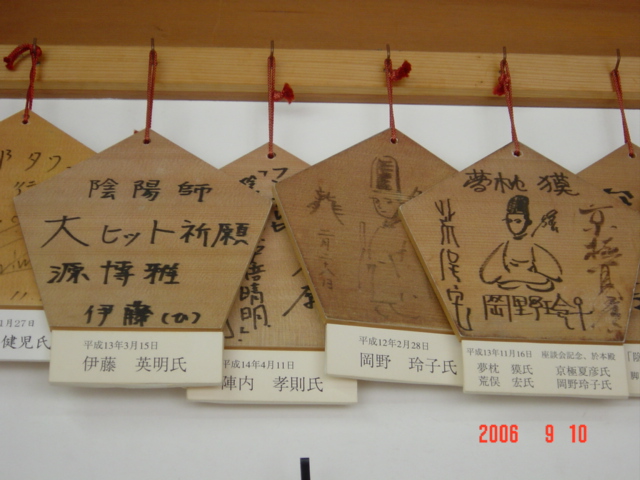 1月27日
健児氏
陰陽師
大ヒット祈願
源博雅
伊藤
平成13年3月15日
伊藤 英明氏
晴明
平成14年4月11日
陣内 孝則氏
平成12年2月28日
岡野 玲子氏
夢枕獏
荒俣宏
岡野玲子
京極夏彦
平成13年11月16日 座談会記念、於本殿
夢枕 獏氏 京極夏彦氏
荒俣 宏氏 岡野玲子氏
2006 9 10